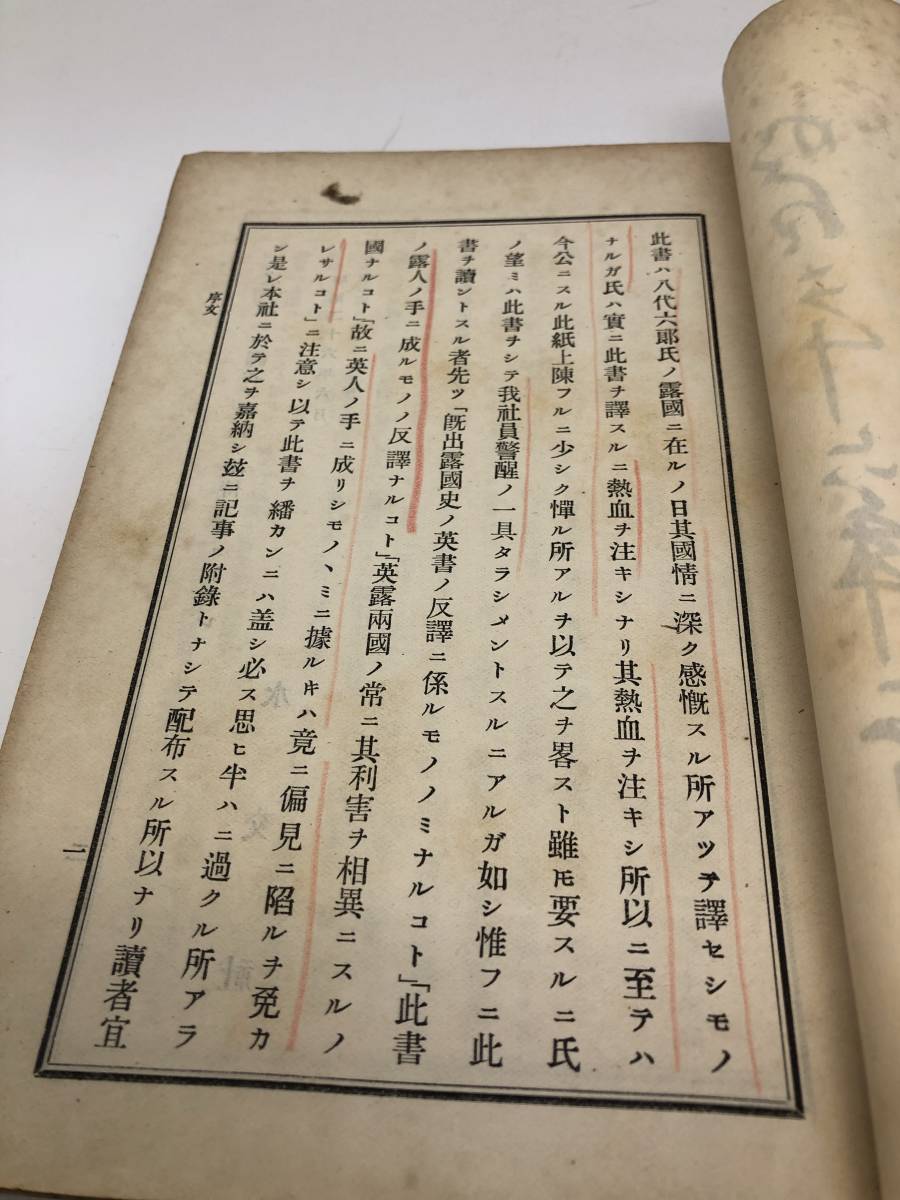 此書ハ八代六郎氏ノ露國ニ在ルノ日其國情ニ深ク感慨スル所アツテ譯セシモノ
ナルガ氏ハ實ニ此書ヲ譯スルニ熱血ヲ注キシナリ其熱血ヲ注キシ所以ニ至テハ
今公ニスル此紙上陳フルニ少シク憚ル所アルヲ以テ之ヲ畧スト雖𪜈要スルニ氏
ノ望ミハ此書ヲシテ我社員警醒ノ一具タラシメントスルニアルガ如シ惟フニ此
書ヲ讀ントスル者先ツ「既出露國史ノ英書ノ反譯ニ係ルモノノミナルコト」「此書
ノ露人ノ手ニ成ルモノノ反譯ナルコト」「英露兩國ノ常ニ其利害ヲ相異ニスルノ
國ナルコト」「故ニ英人ノ手ニ成リシモノヽミニ據ル𪜈ハ竟ニ偏見ニ陷ルヲ免カ
レサルコト」ニ注意シ以テ此書ヲ繙カンニハ盖シ必ス思ヒ半ハニ過クル所アラ
ン是レ本社ニ於テ之ヲ嘉納シ玆ニ記事ノ附錄トナシテ配布スル所以ナリ讀者宜
序文
一